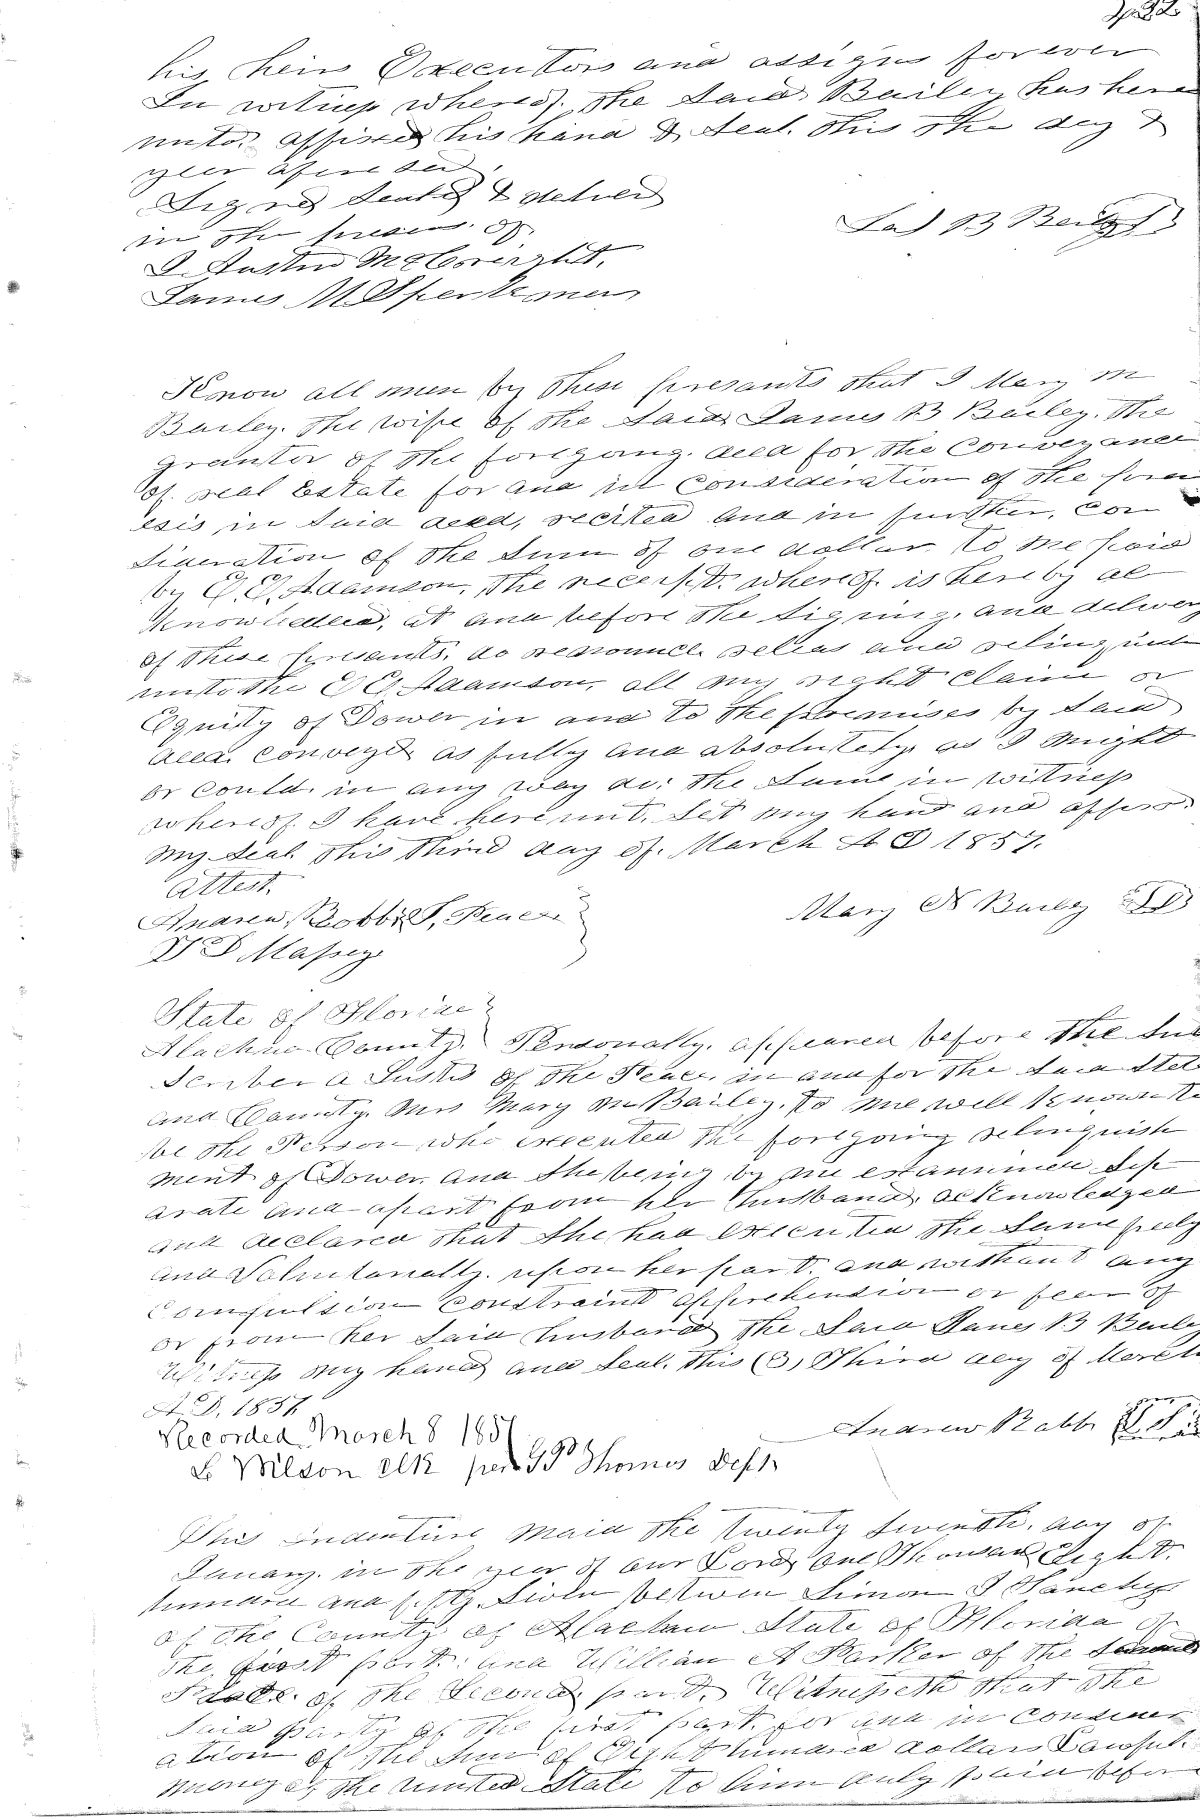 his heirs Executors and assigns forever
In witness whereof, the Said Bailey has here
unto affixed his hand & Seal. this the day &
year afore sed.
Signed Sealed & delived
in the presens of
Jas B Bailey
J. Austin McCoright.
James M Sparkman
Know all men by these presants that I Mary M
Bailey. the wife of the Said James B Bailey. the
grantor of the foregoing. deed for the Conveyance
of real Estate for and in consideration of the prem
esis, in Said deed, recited and in further, con
sideration of the Sum of one dollar to me paid
by E. E. Adamson, the receipt. whereof is hereby ac
knowledeed, at and before the signing, and delivery
of these presants, do renounce releas and relinquish
unto the E E. Adamson, all my right claim or
Equity of Dower in and to the premises by Said
deed. conveyed as fully and absolutely as I might
or could in any way do. the Same in witness
whereof I have hereunt. Set my hand and affix
my seal this third day of. March A D 1857.
attest.
Andrew Robb J, Peace
Mary M Bailey
D Massey
State of Floridae
Alachua County. Personally. appeared before the Sub
scriber a Justis of the Peace, in and for the Said State
and County. Mrs Mary M Bailey. to me well known to
be the Person who executed the foregoing relinquish
ment of Dower. and She being by me examined Sep
arate and apart from her husband, acknowledged
and declared that She had executed the Same freely
and Voluntarally. upon her part. and without any
compulsion constraint apprehension or fear of
or from her Said husband the Said James B Bailey
Witness my hand and Seal. this (3) Third day of March
A. D. 1857
Andrew Robb L S
Recorded March 8 1857
L Wilson Clk per G P Thomas Dept.
This indenture maid the twenty Seventh. day of
January. in the year of our Lord one Thousand Eight.
hundred and fifty. Seven between Simon J Sanchez
of the County of Alachua State of Florida of
the first part. and William A Parker of the
State. of the Second part. Witnesseth that the
Said party of the first part. for and in consider
ation of the Sum of Eight hundred dollars Lawful.
money of the united State to him duly paid before